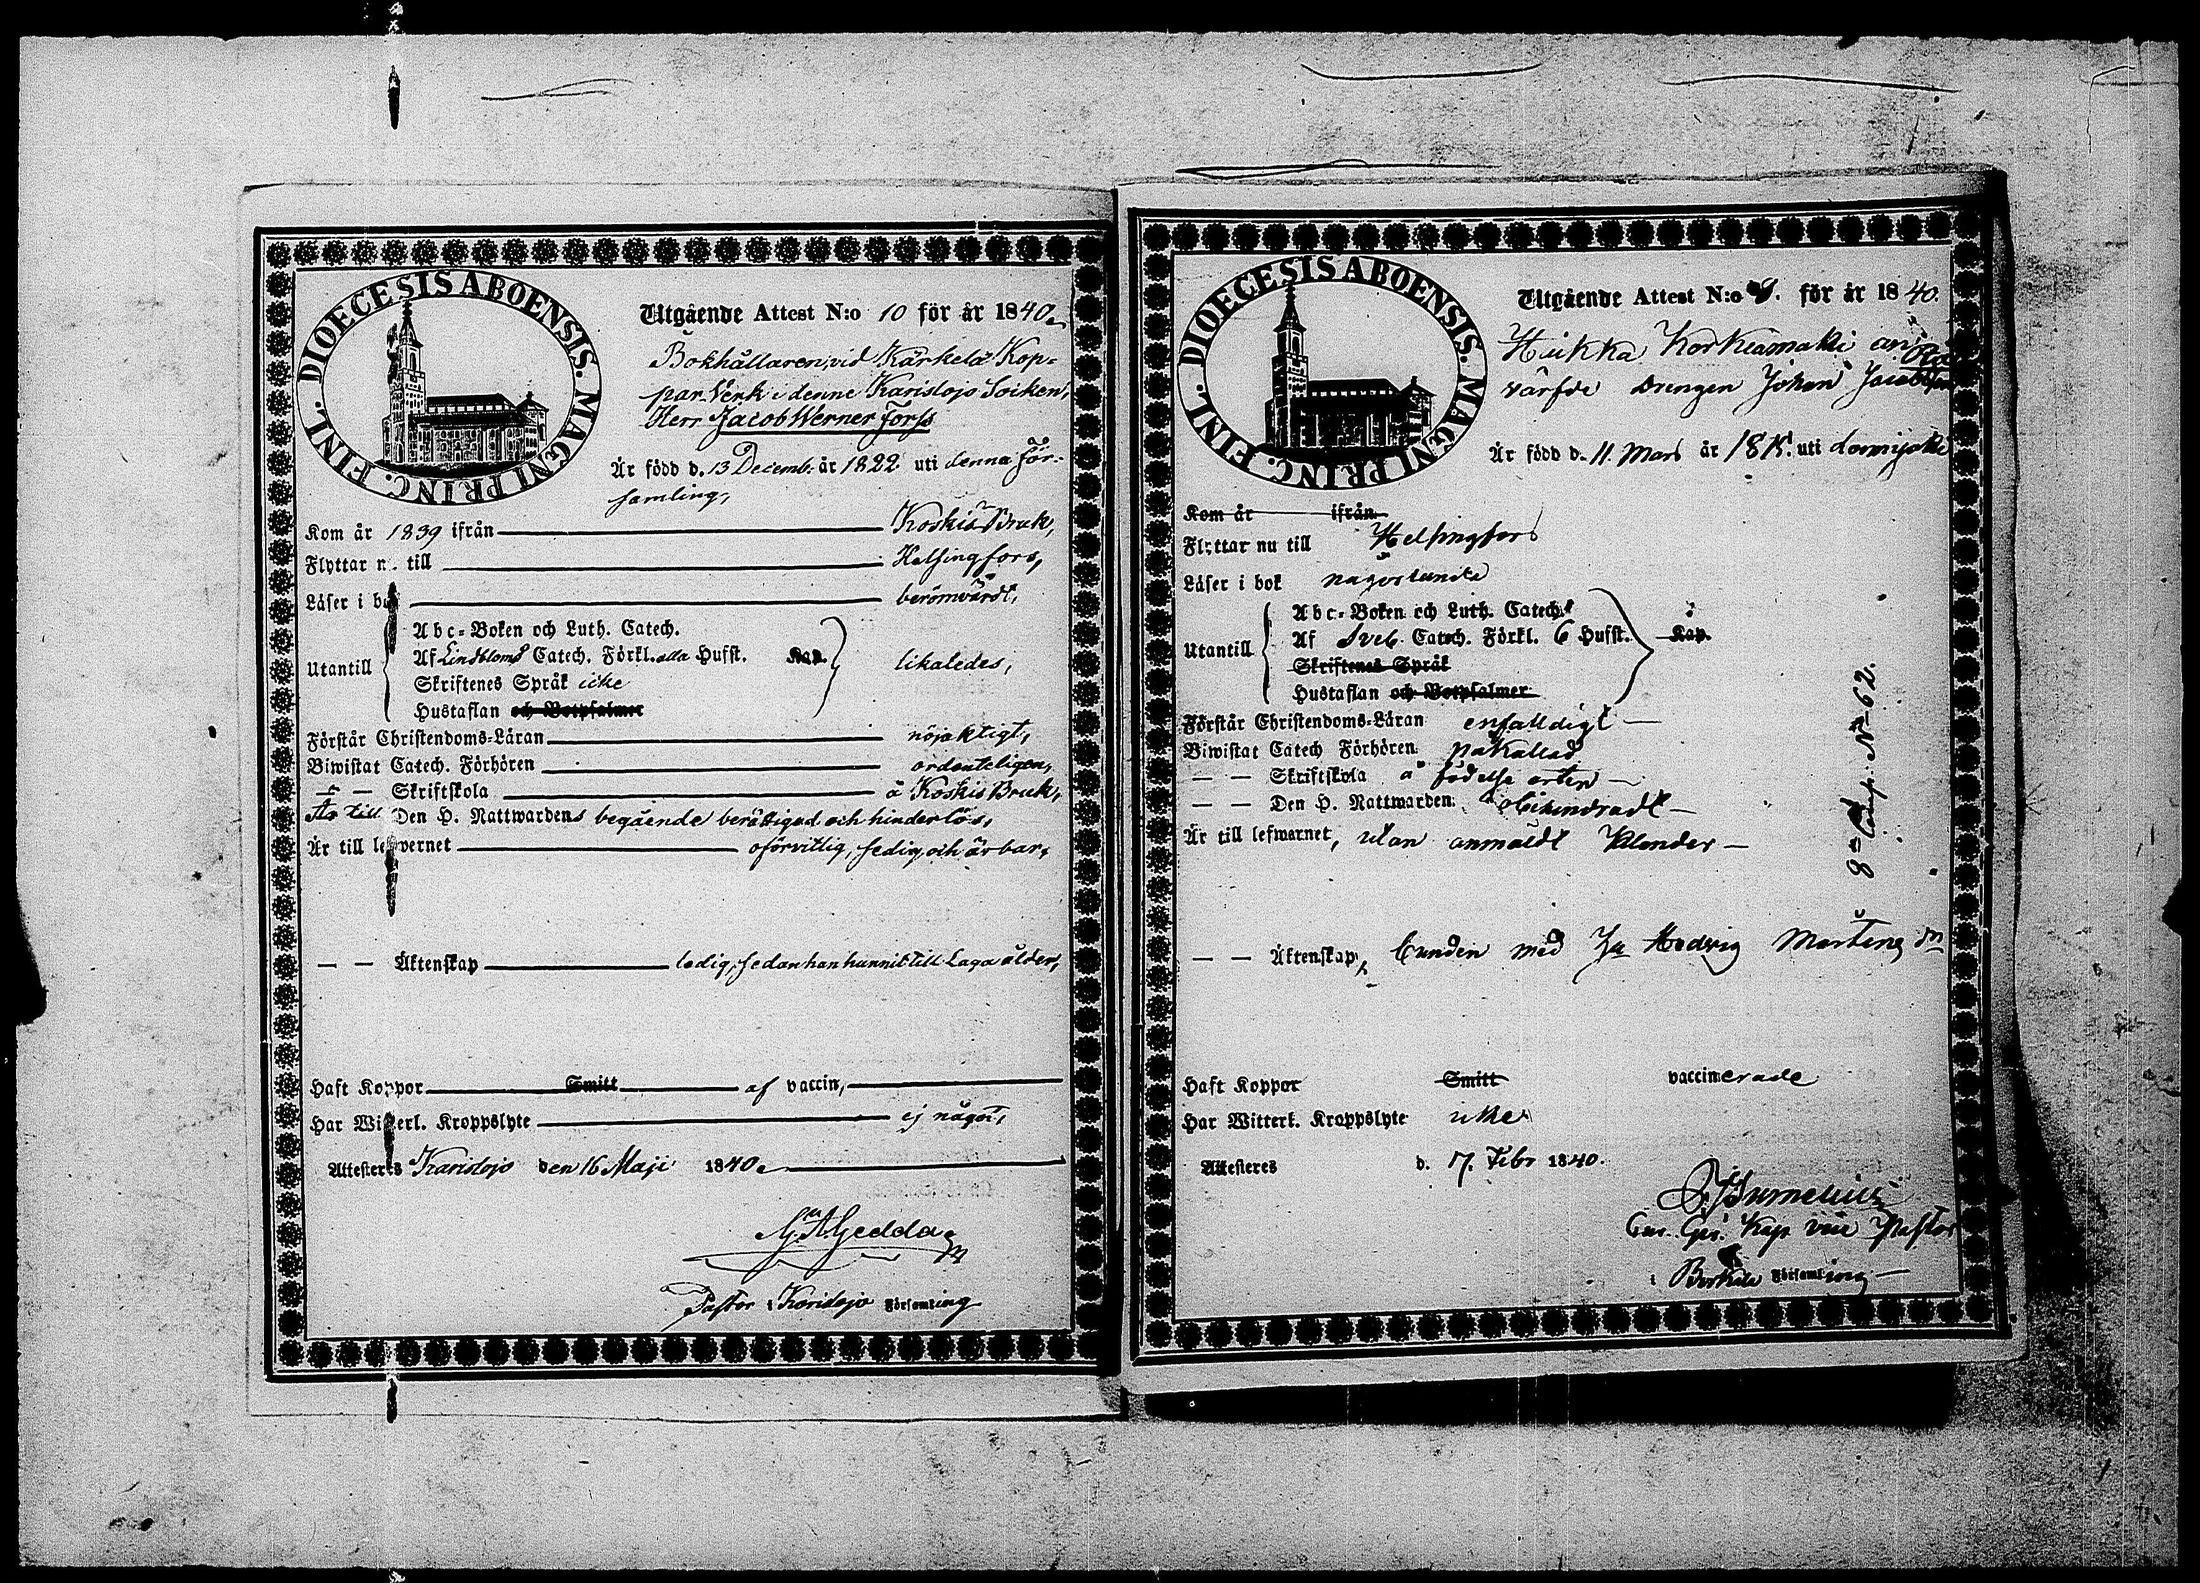 DIOECESIS ABOENSIS. MAGNI PRINC. FINL.
Utgående Attest N:o 10 för år 1840.
Bokhållaren, vid Kärkelä Kop-
par Verk i denne Karislojo Soiken,
Herr Jacob Werner Forss
Är född d. 13 Decemb. år 1822 uti denna För-
samling,
Kom år 1839 ifrån Koskis Bruk,
Flyttar nu till Helsingfors,
Läser i bok berömvärdt,
Abc-Boken och Luth. Catech.
Utantill Af Lindbloms Catech. Förkl. alla Husst. Kap. likaledes,
Skriftenes Språk icke
Hustaflan och Botpsalmer
Förstår Christendoms-Läran nöjaktigt,
Biwistat Catech. Förhören ordenteligen,
— — Skriftskola å Koskis Bruk,
Är till Den H. Nattwardens begående berättigad och hinderlös,
Är till lefwernet oförvitlig, sedig och ärbar,
— — Äktenskap ledig, sedan han hunnit till Laga ålder,
Haft Koppor Smitt af vaccin,
Har Witterl. Kroppslyte ej något,
Attesteras Karislojo den 16 Maji 1840.
G. A. Gedda
Pastor i Karislojo Församling
DIOECESIS ABOENSIS. MAGNI PRINC. FINL.
Utgående Attest N:o för år 1840.
Heikka Korkiamäki
värfde drengen Johan Jacobsson
Är född d. 11 Mars år 181 uti
Kom år ifrån
Flyttar nu till Helsingfors
Läser i bok någorlunda
Abc-Boken och Luth. Catech.
Utantill Af Sveb. Catech. Förkl. 6 Husst. Kap.
Skriftenes Språk
Hustaflan och Botpsalmer
Förstår Christendoms-Läran enfalldigt —
Biwistat Catech Förhören påkallad
— — Skriftskola å födelse orten —
— — Den H. Nattwarden obehindradt —
Är till lefwernet, utan anmäldt klander —
8de Comp. No 62.
— — Äktenskap, bunden med Hedvig Mårtens dr
Haft Koppor Smitt vaccinerade
Har Witterl. Kroppslyte icke
Attesteres d. 17. Febr 1840.
Kap vice Pastor
i Församling —